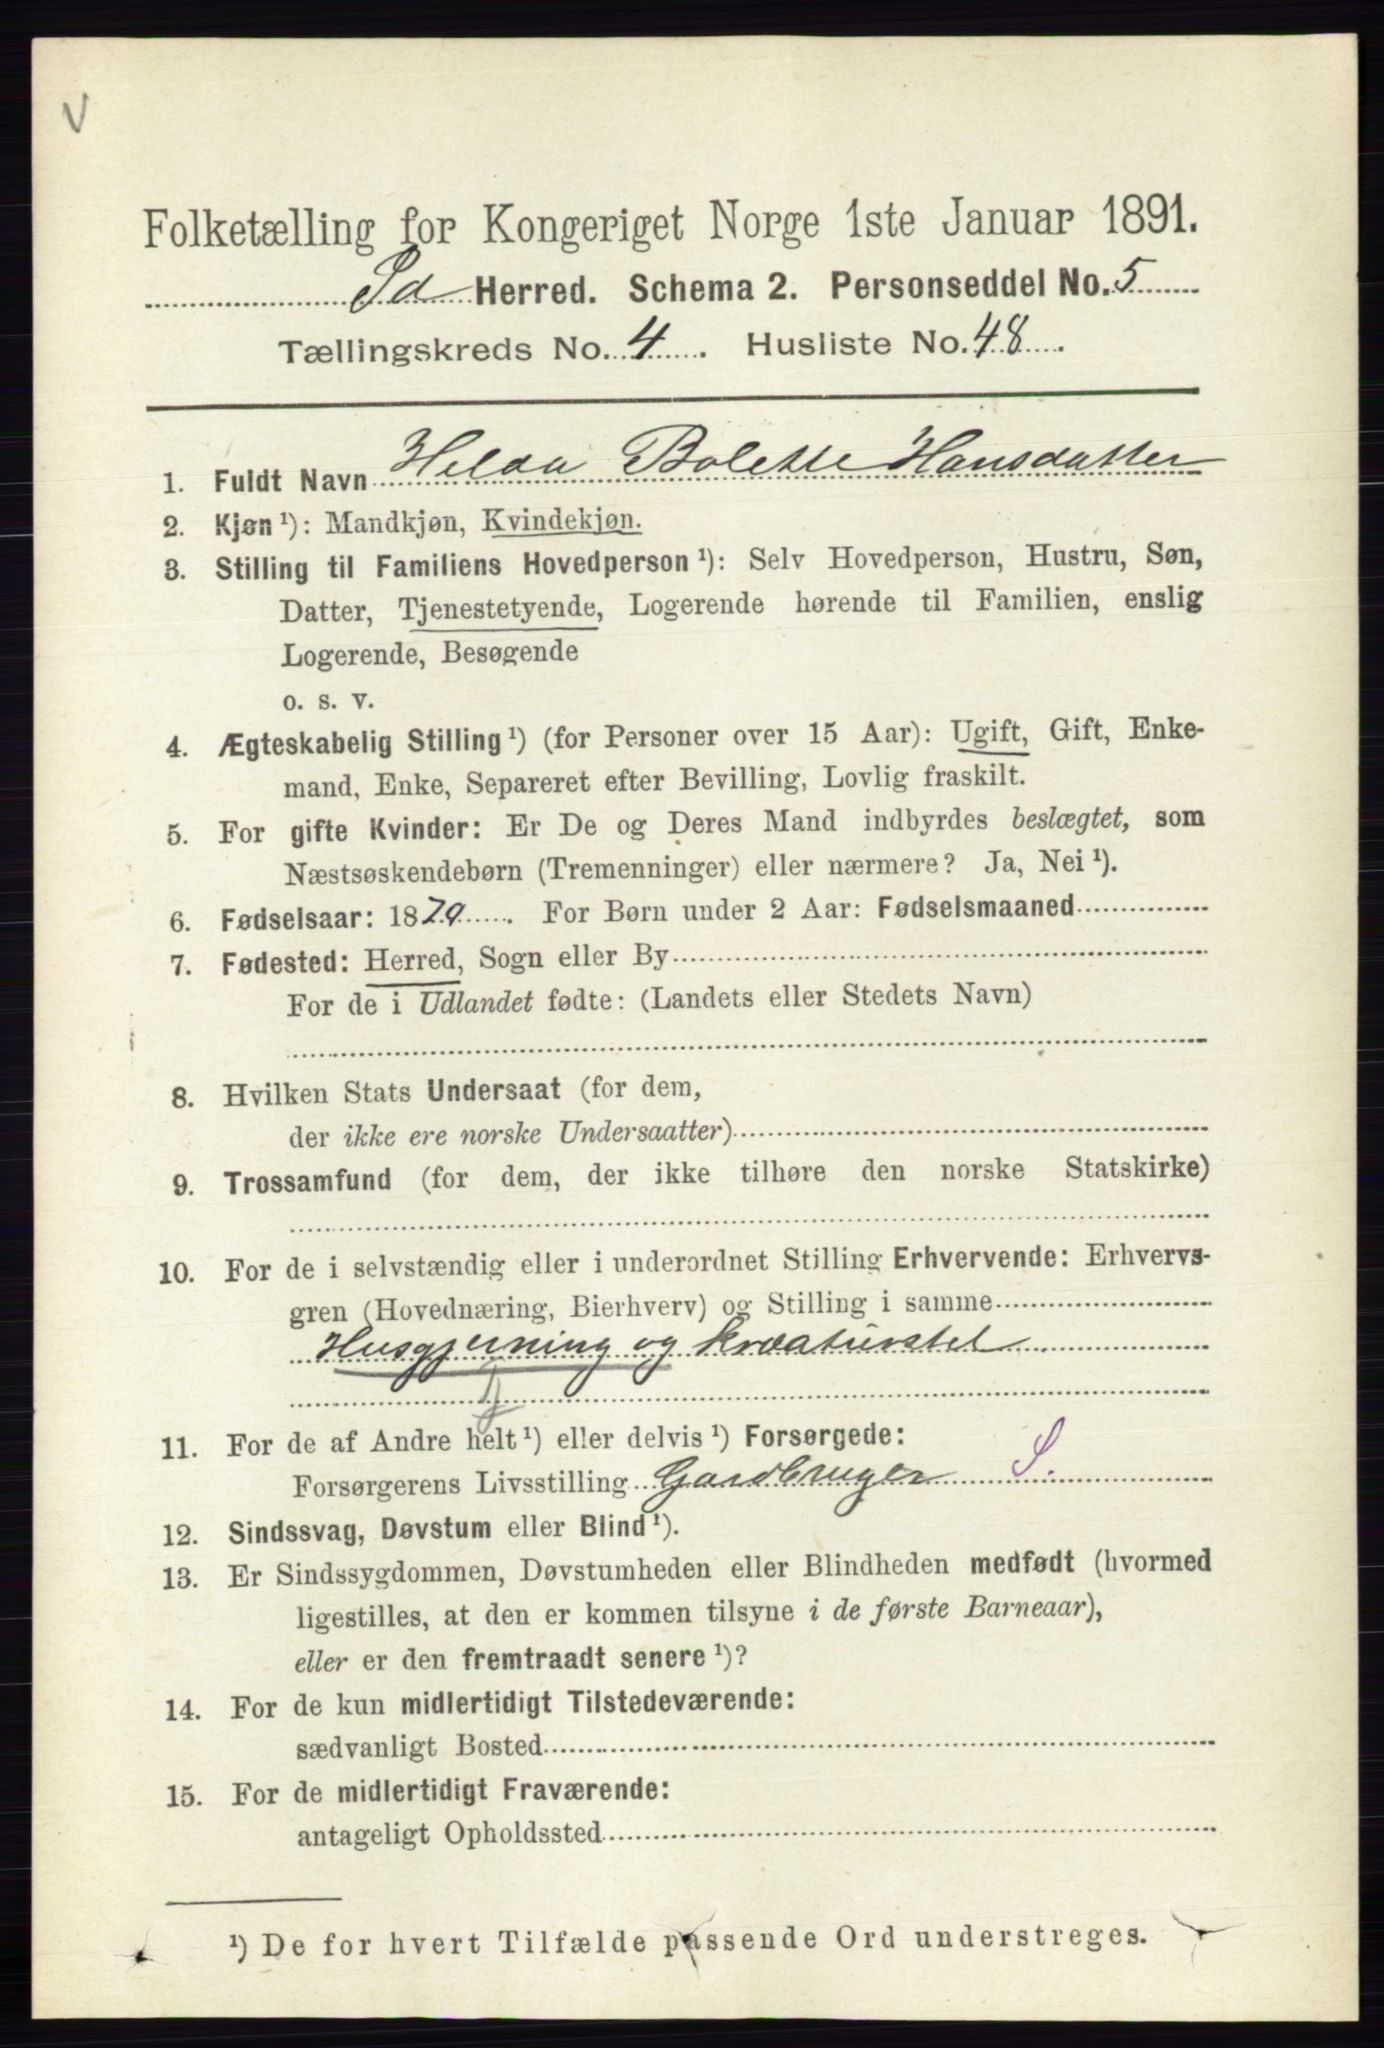 V
Folketælling for Kongeriget Norge 1ste Januar 1891.
Id Herred. Schema 2. Personseddel No. 5
Tællingskreds No. 4. Husliste No. 48.
1. Fuldt Navn Helda Bolette Hansdatter
2. Kjøn ¹): Mandkjøn, Kvindekjøn.
3. Stilling til Familiens Hovedperson ¹): Selv Hovedperson, Hustru, Søn,
Datter, Tjenestetyende, Logerende hørende til Familien, enslig
Logerende, Besøgende
o. s. v.
4. Ægteskabelig Stilling ¹) (for Personer over 15 Aar): Ugift, Gift, Enke-
mand, Enke, Separeret efter Bevilling, Lovlig fraskilt.
5. For gifte Kvinder: Er De og Deres Mand indbyrdes beslægtet, som
Næstsøskendebørn (Tremenninger) eller nærmere? Ja, Nei ¹).
6. Fødselsaar: 1870. For Børn under 2 Aar: Fødselsmaaned
7. Fødested: Herred, Sogn eller By
For de i Udlandet fødte: (Landets eller Stedets Navn)
8. Hvilken Stats Undersaat (for dem,
der ikke ere norske Undersaatter)
9. Trossamfund (for dem, der ikke tilhøre den norske Statskirke)
10. For de i selvstændig eller i underordnet Stilling Erhvervende: Erhvervs-
gren (Hovednæring, Bierhverv) og Stilling i samme
Husgjerning og kreaturstel
11. For de af Andre helt ¹) eller delvis ¹) Forsørgede:
Forsørgerens Livsstilling Gardbruger S.
12. Sindssvag, Døvstum eller Blind ¹).
13. Er Sindssygdommen, Døvstumheden eller Blindheden medfødt (hvormed
ligestilles, at den er kommen tilsyne i de første Barneaar),
eller er den fremtraadt senere ¹)?
14. For de kun midlertidigt Tilstedeværende:
sædvanligt Bosted
15. For de midlertidigt Fraværende:
antageligt Opholdssted
¹) De for hvert Tilfælde passende Ord understreges.